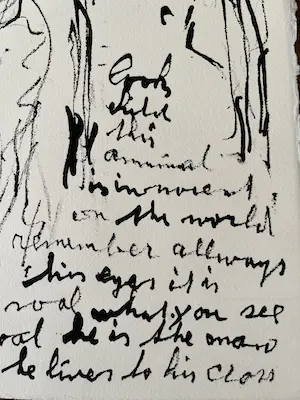 Look
child
this
annimal
is innocent
on the world
remember allways
his eyes it is
what you see
he is the man
he lives to his cross